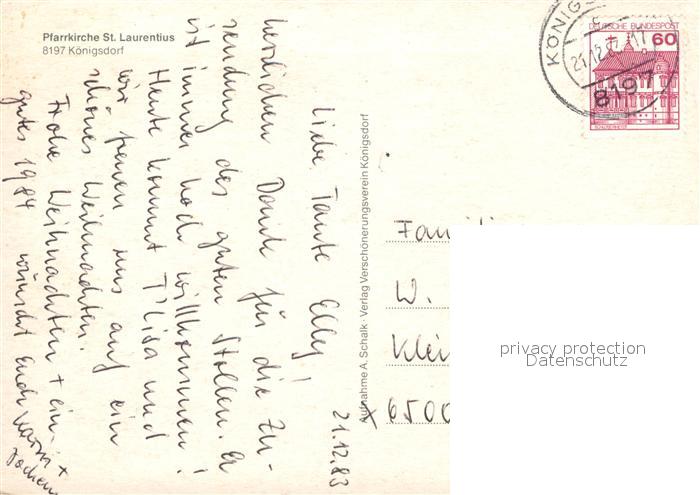 Pfarrkirche St. Laurentius
8197 Königsdorf
21.12.83
Liebe Tante Elly!
herzlichen Dank für die Zu-
sendung des guten Stollen. Er
ist immer hoch willkommen!
Heute kommt T'Lisa und
wir freuen uns auf ein
schönes Weihnachten.
Frohe Weihnachten + ein
gutes 1984 wünscht Euch Karin +
Jochen
Aufnahme A. Schalk · Verlag Verschönerungsverein Königsdorf
DEUTSCHE BUNDESPOST
60
KÖNIGS
21.12.83-17
8197
Famili
W.
Klei
6500
privacy protection
Datenschutz